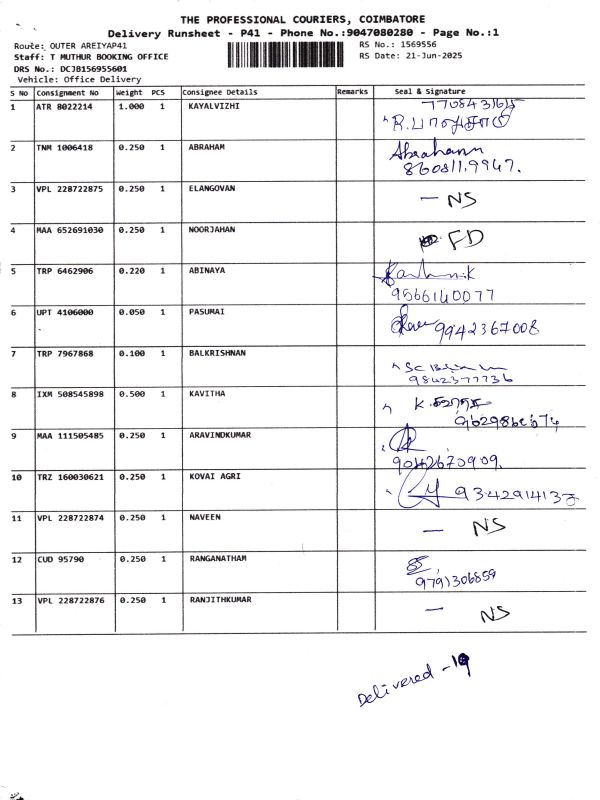 THE PROFESSIONAL COURIERS, COIMBATORE
Delivery Runsheet - P41 - Phone No.:9047080280 - Page No.:1
Route: OUTER AREIYAP41
Staff: T MUTHUR BOOKING OFFICE
DRS No.: DCJB156955601
Vehicle: Office Delivery
RS No.: 1569556
RS Date: 21-Jun-2025
S No Consignment No Weight PCS Consignee Details Remarks Seal & Signature
1 ATR 8022214 1.000 1 KAYALVIZHI
2 TNM 1006418 0.250 1 ABRAHAM Abraham
8608119947.
3 VPL 228722875 0.250 1 ELANGOVAN — NS
4 MAA 652691030 0.250 1 NOORJAHAN FD
5 TRP 6462906 0.220 1 ABINAYA
9566140077
6 UPT 4106000 0.050 1 PASUMAI 9942367008
7 TRP 7967868 0.100 1 BALKRISHNAN
9842377736
8 IXM 508545898 0.500 1 KAVITHA
9 MAA 111505485 0.250 1 ARAVINDKUMAR
9042670909.
10 TRZ 160030621 0.250 1 KOVAI AGRI
11 VPL 228722874 0.250 1 NAVEEN — NS
12 CUD 95790 0.250 1 RANGANATHAM
9791306859
13 VPL 228722876 0.250 1 RANJITHKUMAR — NS
Delivered -